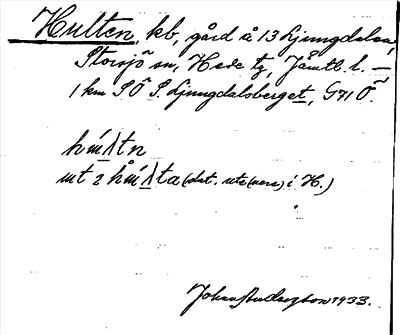 Hulten, kb, gård å 13 Ljungdalen,
Storsjö sn, Hede tg, Jämtl. l. —
1 km S Ö S. Ljungdalsberget, G71 Ö.
mt 2 (dat. ute (vers) i H.)
Johan Anderzson 1933.